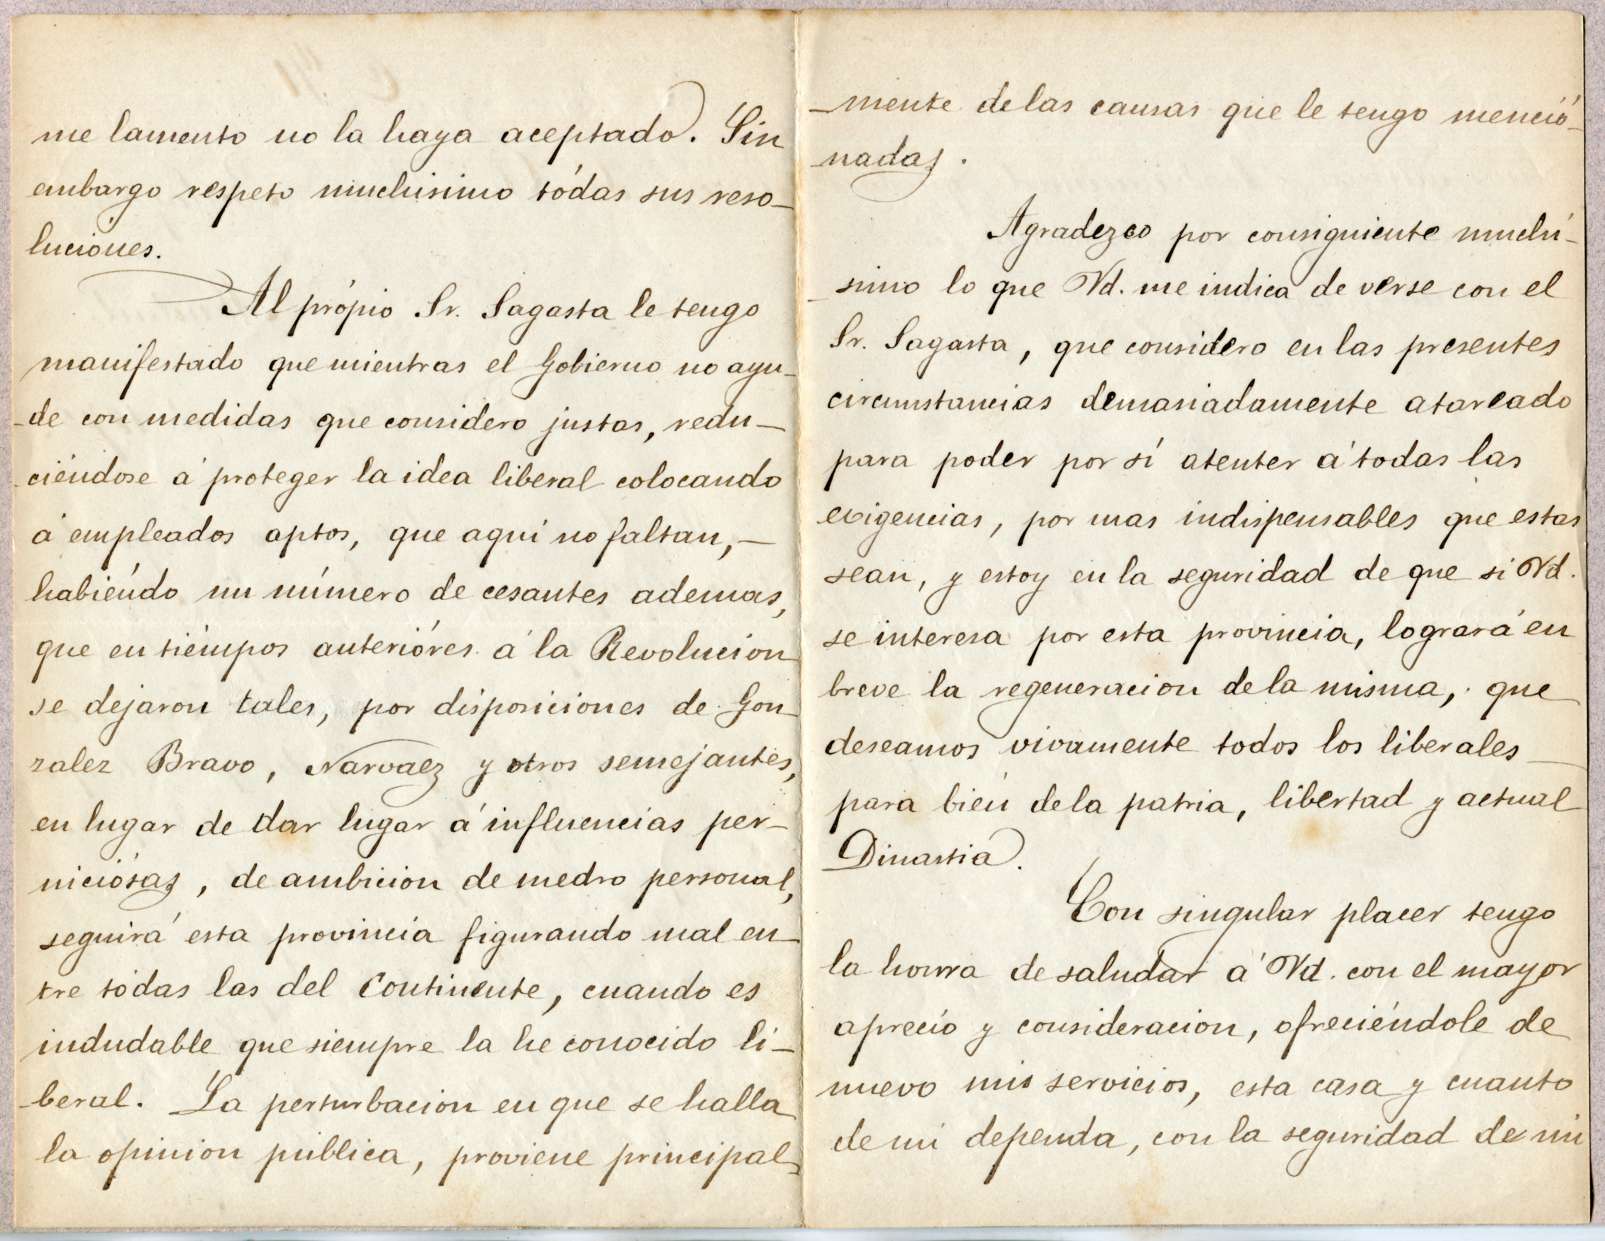 me lamento no la haya aceptado. Sin
embargo respeto muchisimo tódas sus reso-
luciónes.
Al própio Sr. Sagasta le tengo
manifestado que mientras el Gobierno no ayu-
-de con medidas que considero justas, redu-
-ciéndose á proteger la idea liberal colocando
á empleados aptos, que aquí no faltan,-
habiéndo un número de cesantes ademas,
que en tiémpos anterióres á la Revolución
se dejaron tales, por disposiciones de Gon
zalez Bravo, Narvaez y otros semejantes,
en lugar de dar lugar á influencias per-
niciósas, de ambicion de medro personal,
seguirá esta provincia figurando mal en-
tre tódas las del Continente, cuando es
indudable que siempre la he conocido li-
-beral. La perturbacion en que se halla
la opinion pública, proviene principal-
-mente de las causas que le tengo menció-
-nadas.
Agradezco por consiguiente muchí-
-simo lo que Vd. me indica de verse con el
Sr. Sagasta, que considero en las presentes
circunstancias demasiadamente atareado
para poder por sí atenter á todas las
exigencias, por mas indispensables que estas
sean, y estoy en la seguridad de que si Vd.
se interesa por esta provincia, logrará en
breve la regeneracion de la misma, que
deseamos vivamente todos los liberales-
para bién de la patria, libertad y actual
Dinastia.
Con singular placer tengo
la honra de saludar á Vd. con el mayor
aprecio y consideracion, ofreciéndole de
nuevo mis servicios, esta casa y cuanto
de mi dependa, con la seguridad de mi